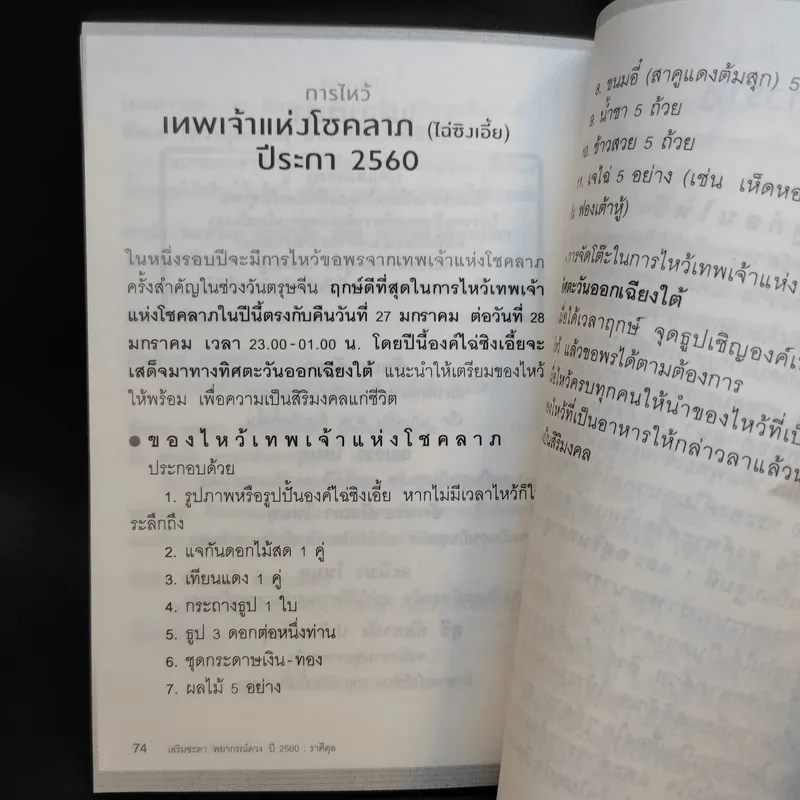 การไหว้
เทพเจ้าแห่งโชคลาภ (ไฉ่ซิงเอี้ย)
ปีระกา 2560
ในหนึ่งรอบปีจะมีการไหว้ขอพรจากเทพเจ้าแห่งโชคลาภ
ครั้งสำคัญในช่วงวันตรุษจีน ฤกษ์ดีที่สุดในการไหว้เทพเจ้า
แห่งโชคลาภในปีนี้ตรงกับคืนวันที่ 27 มกราคม ต่อวันที่ 28
มกราคม เวลา 23.00-01.00 น. โดยปีนี้องค์ไฉ่ซิงเอี้ยจะ
เสด็จมาทางทิศตะวันออกเฉียงใต้ แนะนำให้เตรียมของไหว้
ให้พร้อม เพื่อความเป็นสิริมงคลแก่ชีวิต
● ของไหว้เทพเจ้าแห่งโชคลาภ
ประกอบด้วย
1. รูปภาพหรือรูปปั้นองค์ไฉ่ซิงเอี้ย หากไม่มีเวลาไหว้ก็ใ
ระลึกถึง
2. แจกันดอกไม้สด 1 คู่
3. เทียนแดง 1 คู่
4. กระถางธูป 1 ใบ
5. ธูป 3 ดอกต่อหนึ่งท่าน
6. ชุดกระดาษเงิน-ทอง
7. ผลไม้ 5 อย่าง
74 เสริมชะตา พยากรณ์ดวง ปี 2560 : ราศีตุล
8. ขนมอี๋ (สาคูแดงต้มสุก) 5
9. น้ำชา 5 ถ้วย
10. ข้าวสวย 5 ถ้วย
11. เจไฉ่ 5 อย่าง (เช่น เห็ดหอ
ฟองเต้าหู้)
การจัดโต๊ะในการไหว้เทพเจ้าแห่ง
ทิศตะวันออกเฉียงใต้
เมื่อได้เวลาฤกษ์ จุดธูปเชิญองค์เท
แล้วขอพรได้ตามต้องการ
ไหว้ครบทุกคนให้นำของไหว้ที่เป็
ของไหว้ที่เป็นอาหารให้กล่าวลาแล้วน
สิริมงคล